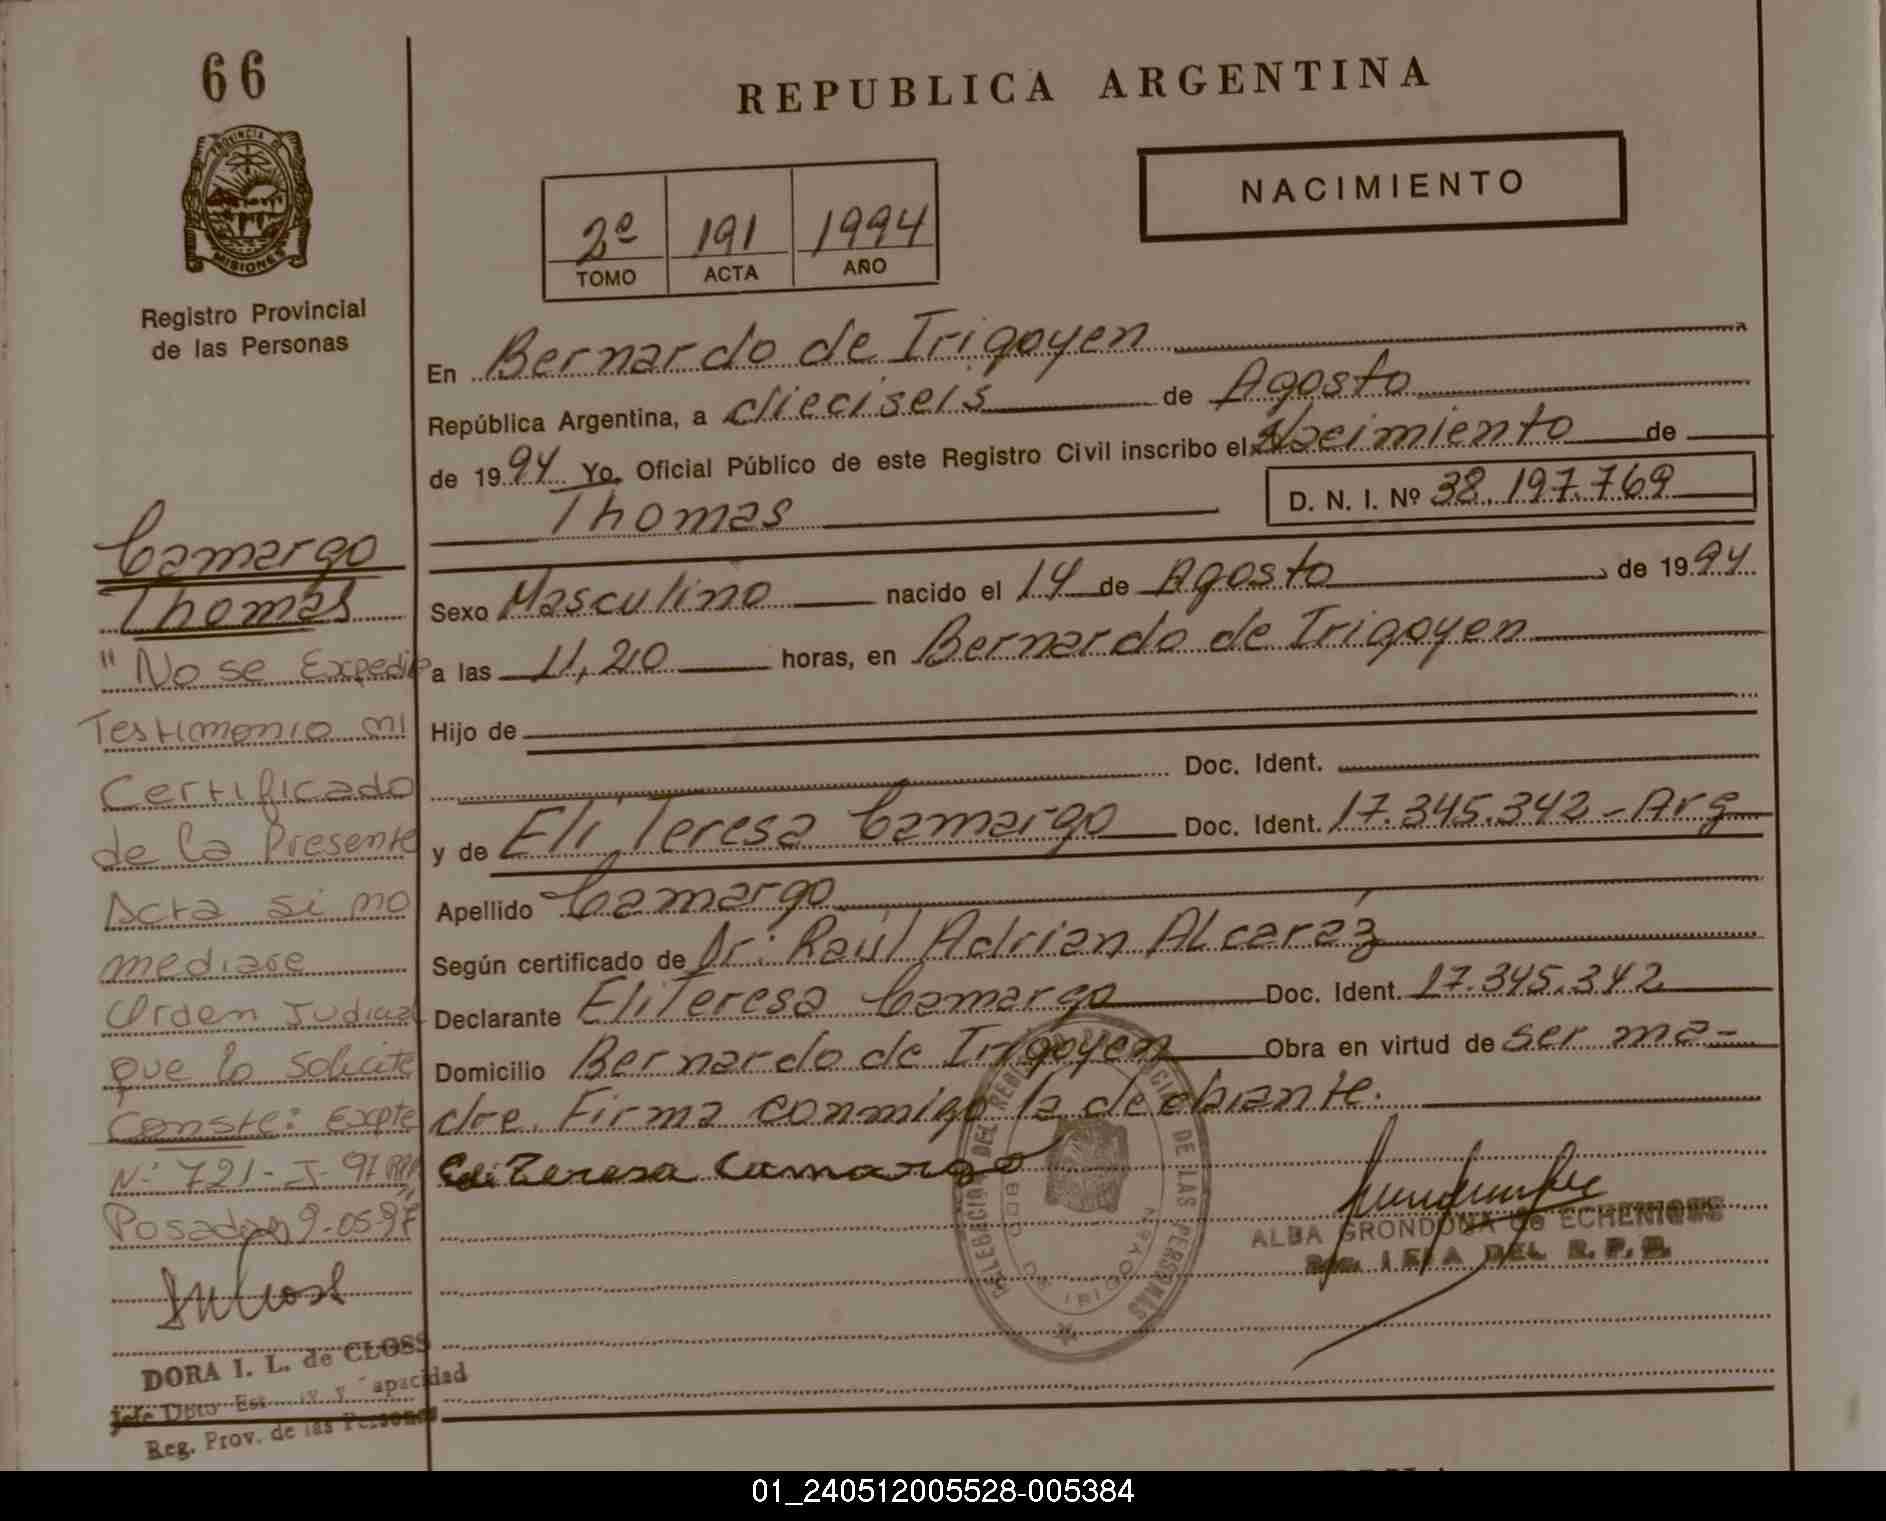 66
PROVINCIA DE
MISIONES
Registro Provincial
de las Personas
Camargo
Thomas
"No se Expedirá
Testimonio ni
Certificado
de la Presente
Acta si no
mediare
Orden Judicial
que lo solicite
Conste: Expte
Nº 721-J-97 RPP
Posadas 9-05-97"
DORA I. L. de CLOSS
Jefe Dpto y Capacidad
Reg. Prov. de las Personas
REPUBLICA ARGENTINA
NACIMIENTO
2º 191 1994
TOMO ACTA AÑO
En Bernardo de Irigoyen
República Argentina, a dieciseis de Agosto
de 1994 Yo, Oficial Público de este Registro Civil inscribo el Nacimiento de
Thomas D. N. I. Nº 38.197.769
Sexo Masculino nacido el 14 de Agosto de 1994
a las 11,20 horas, en Bernardo de Irigoyen
Hijo de
Doc. Ident.
y de Eli Teresa Camargo Doc. Ident. 17.345.342-Arg
Apellido Camargo
Según certificado de Dr: Raúl Adrian Alcaráz
Declarante Eli Teresa Camargo Doc. Ident. 17.345.342
Domicilio Bernardo de Irigoyen Obra en virtud de ser ma-
dre. Firma conmigo la declarante.
Eli Teresa Camargo
DELEGACIA DEL REG. PROVINCIAL DE LAS PERSONAS
BDO. DE IRIGOYEN
ALBA GRONDONA de ECHENIQUE
DEL R. P. P.
01_240512005528-005384